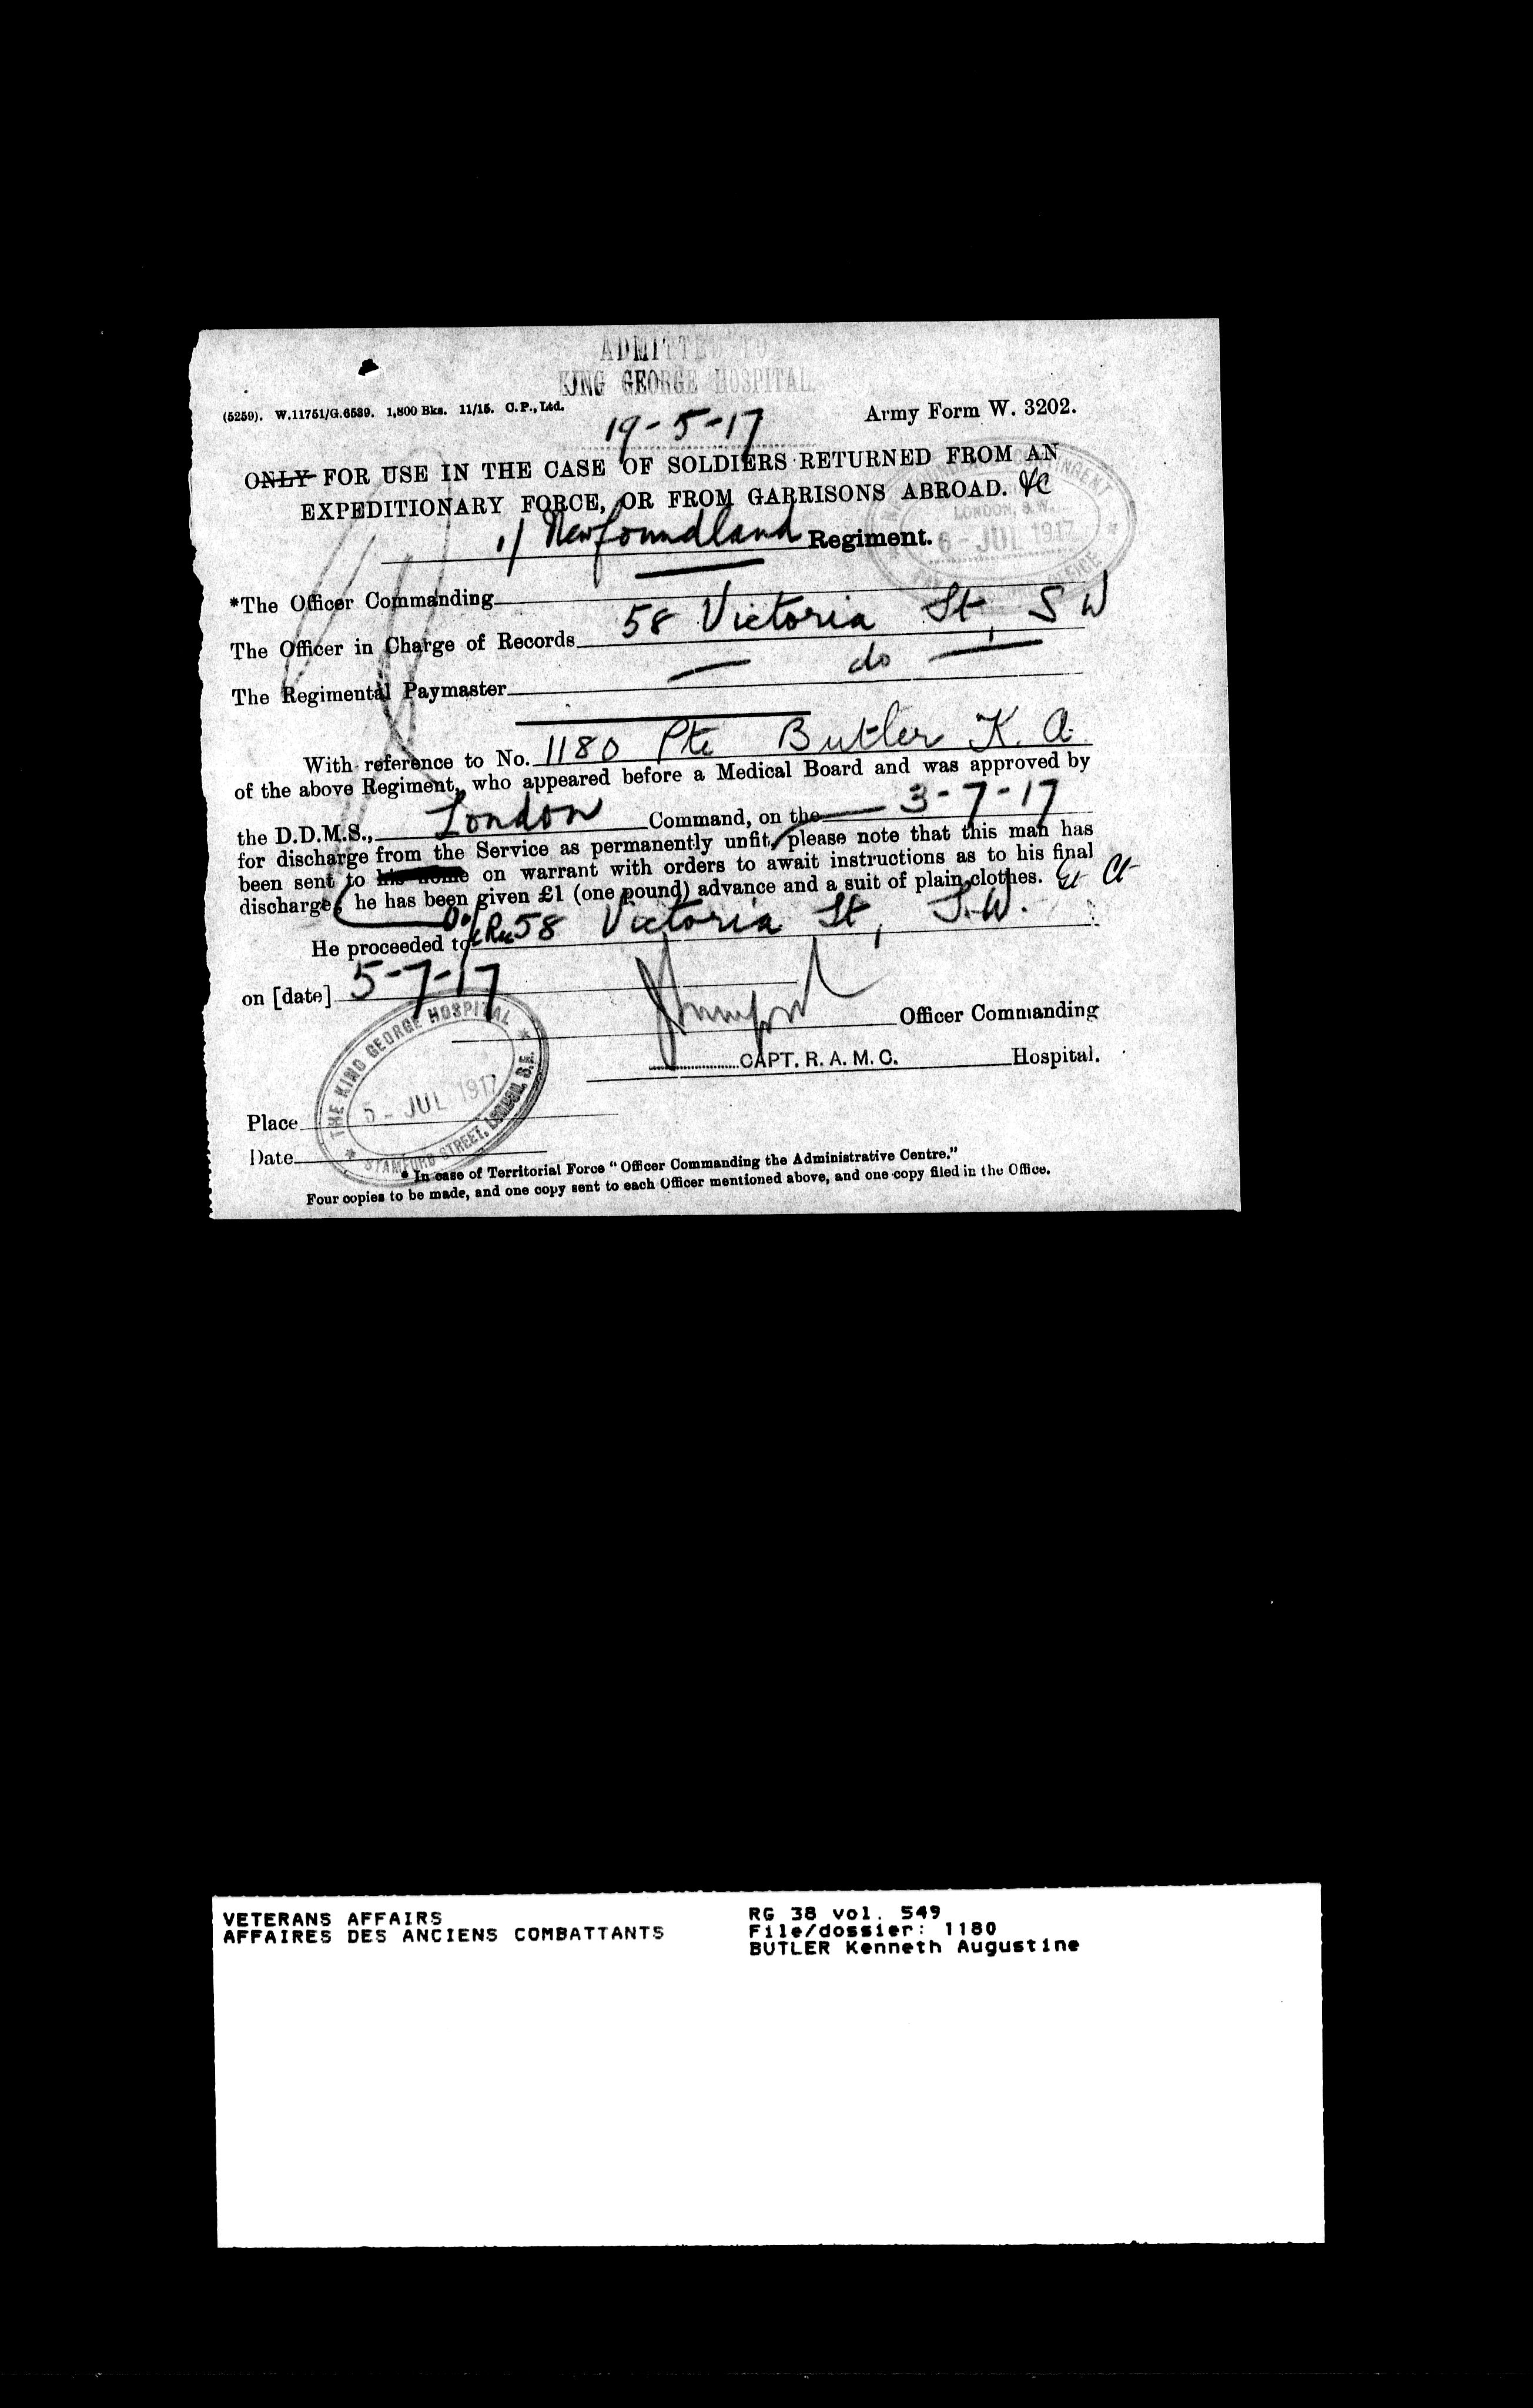 ADMITTED TO
KING GEORGE HOSPITAL
(5259). W.11751/G.6589. 1,800 Bks. 11/15. O.P., Ltd.
19-5-17
Army Form W. 3202.
ONLY FOR USE IN THE CASE OF SOLDIERS RETURNED FROM AN
EXPEDITIONARY FORCE, OR FROM GARRISONS ABROAD. &c
CONTINGENT
LONDON, S.W.
6 - JUL 1917
OFFICE
1/ Newfoundland Regiment.
*The Officer Commanding
The Officer in Charge of Records 58 Victoria St, S W
The Regimental Paymaster — do —
With reference to No. 1180 Pte Butler K. A.
of the above Regiment, who appeared before a Medical Board and was approved by
the D.D.M.S., London Command, on the 3-7-17
for discharge from the Service as permanently unfit, please note that this man has
been sent to his home on warrant with orders to await instructions as to his final
discharge, he has been given £1 (one pound) advance and a suit of plain clothes.
He proceeded to 58 Victoria St, S.W.
on [date] 5-7-17
Officer Commanding
CAPT. R. A. M. C. Hospital.
THE KING GEORGE HOSPITAL
5 - JUL 1917
STAMFORD STREET, LONDON, S.E.
Place
Date
* In case of Territorial Force "Officer Commanding the Administrative Centre."
Four copies to be made, and one copy sent to each Officer mentioned above, and one copy filed in the Office.
VETERANS AFFAIRS
AFFAIRES DES ANCIENS COMBATTANTS
RG 38 vol. 549
File/dossier: 1180
BUTLER Kenneth Augustine